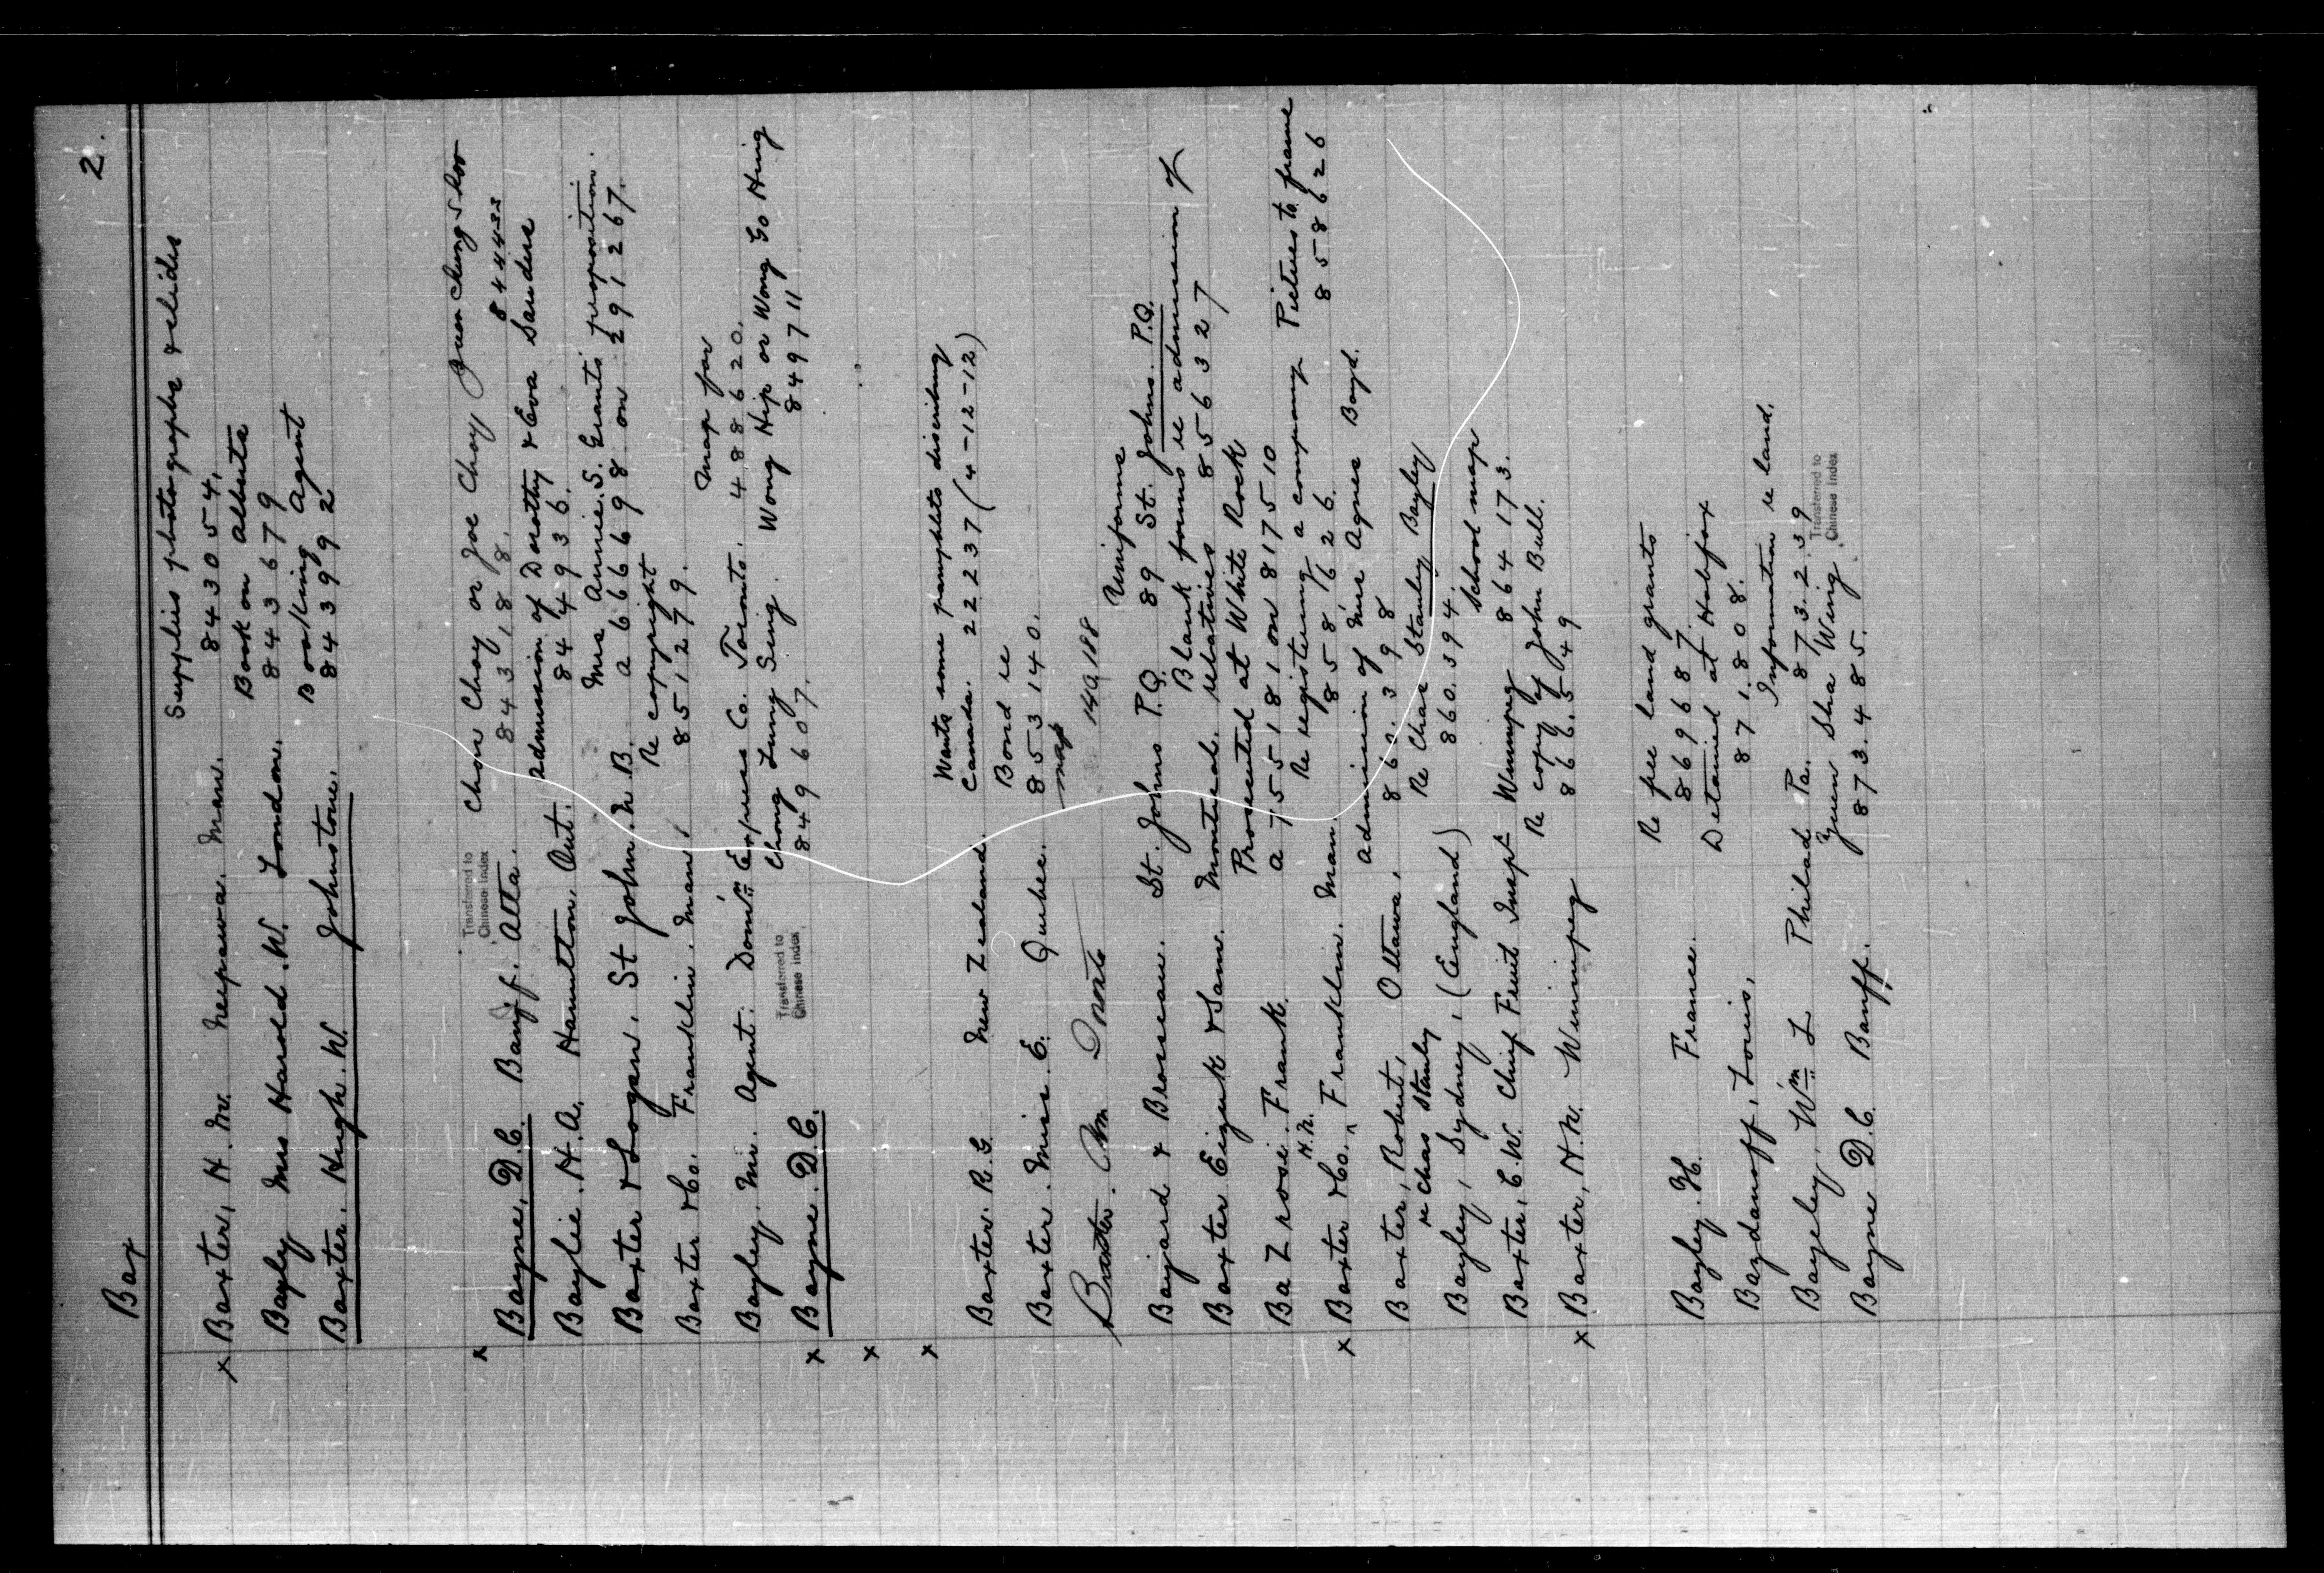 Bax
2.
Supplies photographs & slides
x Baxter, H. Mr. Neepawa. Man. 843054.
Book on Alberta
Bayly Mrs Harold. W. London. 843679
Booking Agent
Baxter. Hugh. W. Johnstone. 843992
Transferred to
Chinese Index
x Chow Choy or Joe Choy
Bayne, D.C. Banff. Alta. 843,188. 844433
Admission of Dorothy & Eva Sandus
Baylie. H.A. Hamilton. Ont. 844936.
Mrs Annie. S. Grants proposition.
Baxter & Logan, St John. N.B. a666698 on 291267.
Re copyright
Baxter & Co. Franklin. Man. 851279.
Map for
Bayley. Mr. Agent. Dom'n Express Co. Toronto. 488620.
Transferred to
Chinese Index
Chong Lung Sing. Wong Hip or Wong Go Hing
x Bayne. D.C. 849607. 849711
x
x Wants some pamphlets describing
Baxter. R.G. New Zealand. Canada. 222237 (4-12-12)
Bond re
Baxter. Miss. E. Quebec. 853140.
map
Baxter. Wm Toronto 149188
Uniforms
Bayard & Brosseau. St. Johns P.Q. 89 St. Johns. P.Q.
Blank forms re admission of
Baxter Eizenk & Sam. Montreal. relatives 856327
Prosecuted at White Rock
Bazrosi. Frank. a755181 on 817510
Re registering a company Pictures to frame
x Baxter & Co. H.N. Franklin. Man. 858626. 858626
Admission of Miss Agnes Boyd.
Baxter, Robert, Ottawa, 862.398
re Chas Stanly Re Chas Stanley Bayley
Bayley, Sydney, (England) 860.394.
School map
Baxter, C.W. Chief Fruit Insp'r Winnipeg 864173.
Re copy of John Bull.
x Baxter, H.N. Winnipeg 866.549
Re free land grants
Bayley. H. France. 869687.
Detained at Halifax
Bazdanoff, Louis, 871.808.
Information re land.
Bayeley, Wm L Philad Pa. 873.2.39
Transferred to
Chinese Index
Yuen Sha Wing.
Bayne D.C. Banff. 873.485.